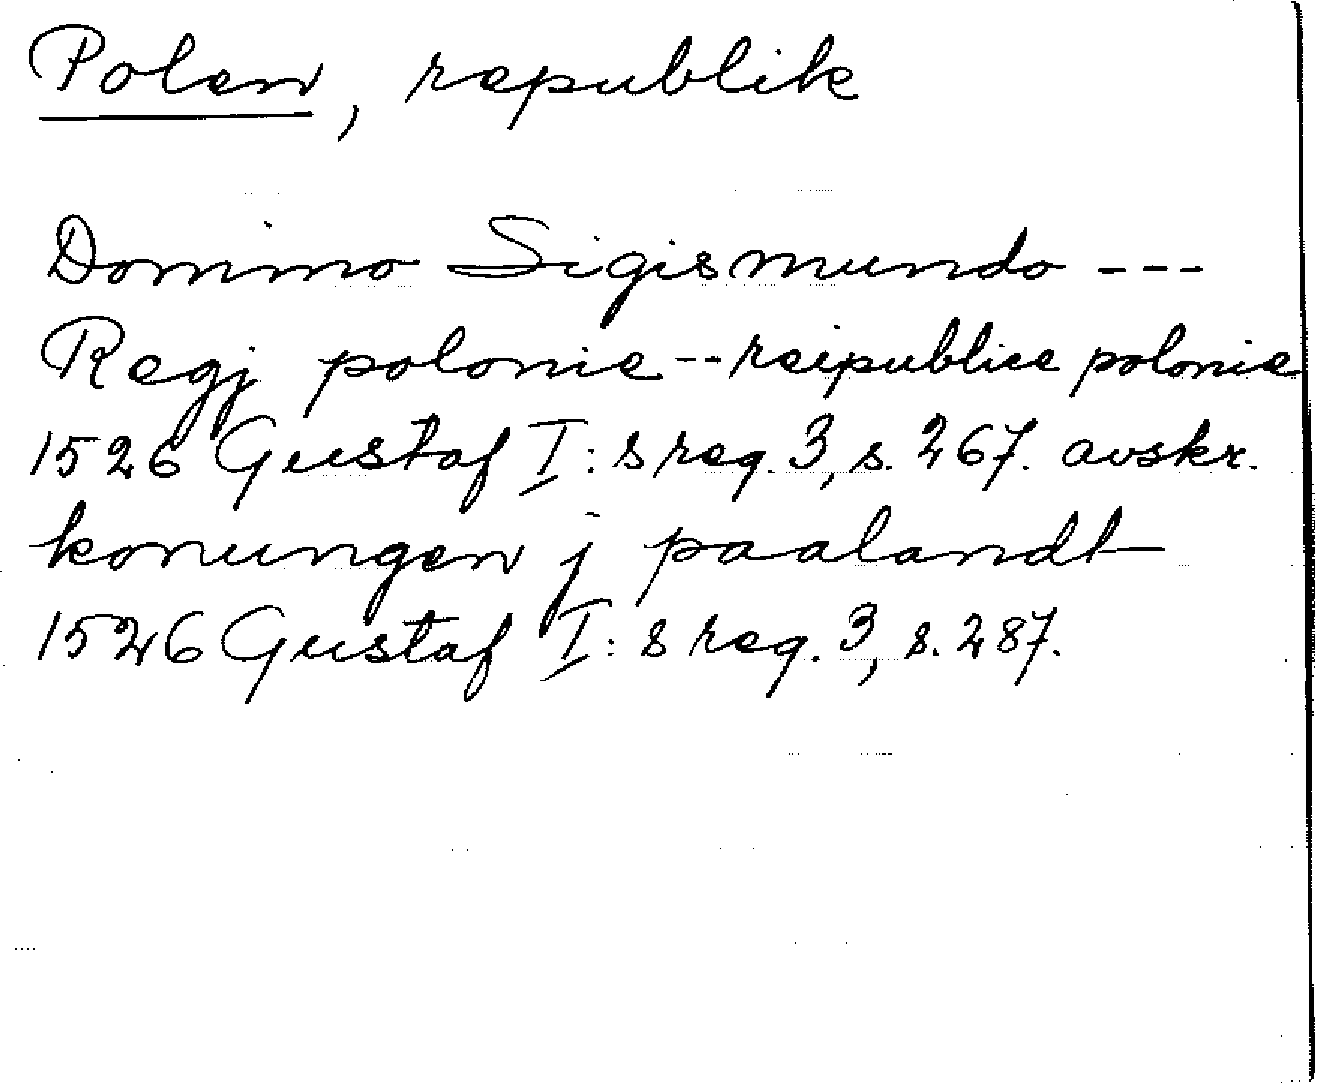 Polen, republik
Domino Sigismundo ---
Regj polonie -- reipublice polonie
1526 Gustaf I:s reg. 3, s. 267. avskr.
konungen j paalandt
1526 Gustaf I:s reg. 3, s. 287.